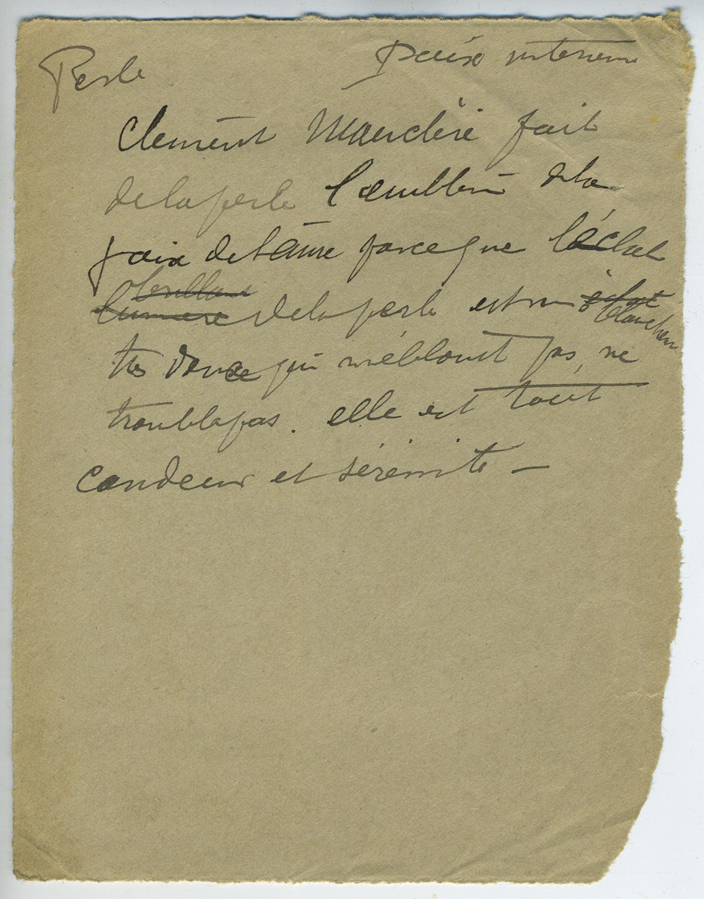 Perle paix interieure
Clément Mauclère fait
de la perle l'emblème de la
paix de l'âme parce que l'éclat
brillant
lumiere de la perle est un éclat
blancheur
très douce qui n'éblouit pas, ne
trouble pas. elle est tout
candeur et sérénité –